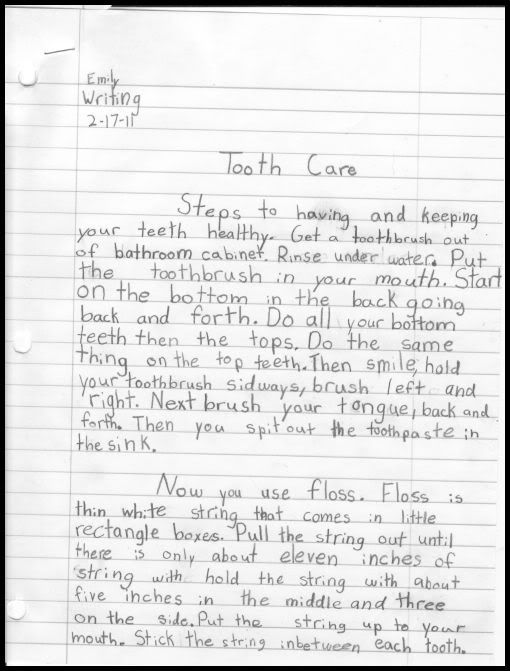 Emily
Writing
2-17-11
Tooth Care
Steps to having and keeping
your teeth healthy. Get a toothbrush out
of bathroom cabinet. Rinse under water. Put
the toothbrush in your mouth. Start
on the bottom in the back going
back and forth. Do all your bottom
teeth then the tops. Do the same
thing on the top teeth. Then smile, hold
your toothbrush sidways, brush left and
right. Next brush your tongue, back and
forth. Then you spit out the toothpaste in
the sink.
Now you use floss. Floss is
thin white string that comes in little
rectangle boxes. Pull the string out until
there is only about eleven inches of
string with hold the string with about
five inches in the middle and three
on the side. Put the string up to your
mouth. Stick the string inbetween each tooth.